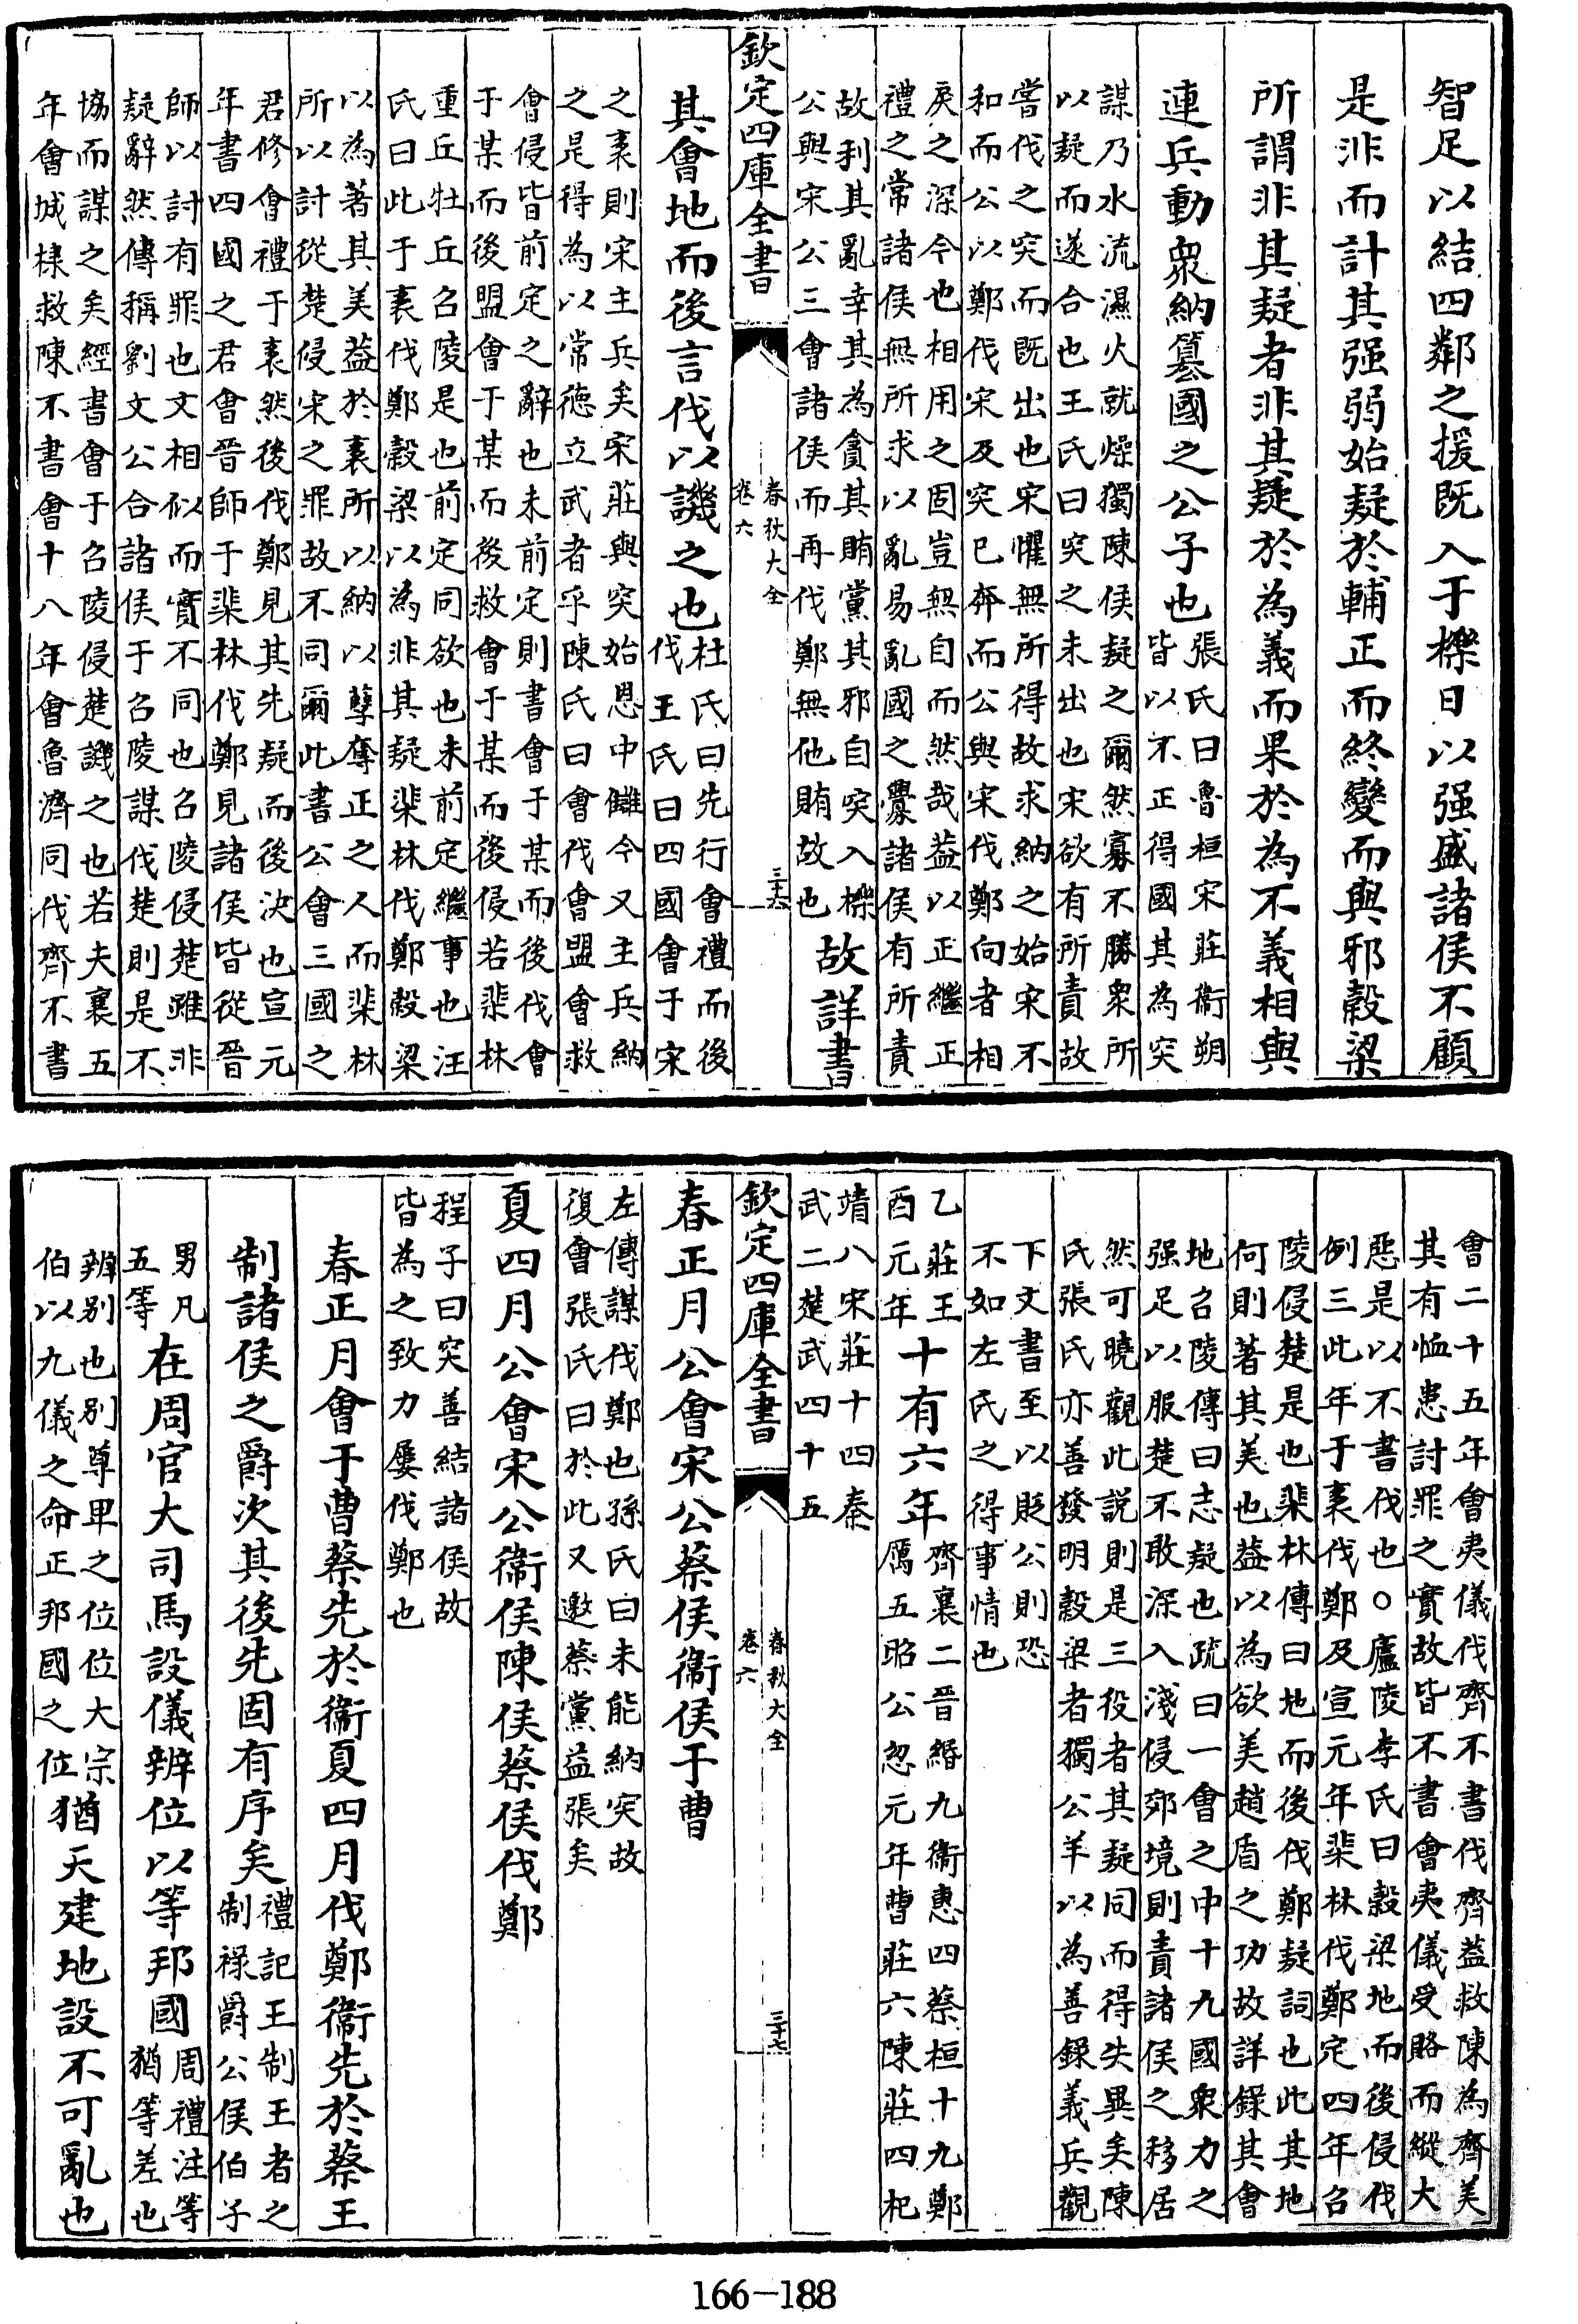 智足以結四鄰之援既入于櫟日以强盛諸侯不顧
是非而計其强弱始疑於輔正而終變而與邪穀梁
所謂非其疑者非其疑於為義而果於為不義相與
連兵動衆納篡國之公子也
張氏曰魯桓宋莊衞朔
皆以不正得國其為突
謀乃水流濕火就燥獨陳侯疑之爾然寡不勝衆所
以疑而遂合也王氏曰突之未出也宋欲有所責故
嘗伐之突而既出也宋懼無所得故求納之始宋不
和而公以鄭伐宋及突已奔而公與宋伐鄭向者相
戾之深今也相用之固豈無自而然哉葢以正繼正
禮之常諸侯無所求以亂易亂國之釁諸侯有所責
故利其亂幸其為貪其賄黨其邪自突入櫟
公與宋公三會諸侯而再伐鄭無他賄故也
故詳書
欽定四庫全書
春秋大全
卷六
三十六
其會地而後言伐以譏之也
杜氏曰先行會禮而後
伐王氏曰四國會于宋
之袲則宋主兵矣宋莊與突始思中雠今又主兵納
之是得為以常德立武者乎陳氏曰會伐會盟會救
會侵皆前定之辭也未前定則書會于某而後伐會
于某而後盟會于某而後救會于某而後侵若棐林
重丘牡丘召陵是也前定同欲也未前定繼事也汪
氏曰此于袲伐鄭穀梁以為非其疑棐林伐鄭穀梁
以為著其美葢於袲所以納以孽奪正之人而棐林
所以討從楚侵宋之罪故不同爾此書公會三國之
君修會禮于袲然後伐鄭見其先疑而後決也宣元
年書四國之君會晉師于棐林伐鄭見諸侯皆從晉
師以討有罪也文相似而實不同也召陵侵楚雖非
疑辭然傳稱劉文公合諸侯于召陵謀伐楚則是不
協而謀之矣經書會于召陵侵楚譏之也若夫襄五
年會城棣救陳不書會十八年會魯濟同伐齊不書
會二十五年會夷儀伐齊不書伐齊葢救陳為齊美
其有恤患討罪之實故皆不書會夷儀受賂而縱大
惡是以不書伐也○廬陵李氏曰穀梁地而後侵伐
例三此年于袲伐鄭及宣元年棐林伐鄭定四年召
陵侵楚是也棐林傳曰地而後伐鄭疑詞也此其地
何則著其美也葢以為欲美趙盾之功故詳錄其會
地召陵傳曰志疑也疏曰一會之中十九國衆力之
强足以服楚不敢深入淺侵郊境則責諸侯之移居
然可曉觀此説則是三役者其疑同而得失異矣陳
氏張氏亦善發明穀梁者獨公羊以為善錄義兵觀
下文書至以貶公則恐
不如左氏之得事情也
乙莊王
酉元年
十有六年
齊襄二晉緡九衞惠四蔡桓十九鄭
厲五昭公忽元年曹莊六陳莊四杞
靖八宋莊十四秦
武二楚武四十五
欽定四庫全書
春秋大全
卷六
三十七
春正月公會宋公蔡侯衞侯于曹
左傳謀伐鄭也孫氏曰未能納突故
復會張氏曰於此又邀蔡黨益張矣
夏四月公會宋公衞侯陳侯蔡侯伐鄭
程子曰突善結諸侯故
皆為之致力屢伐鄭也
春正月會于曹蔡先於衞夏四月伐鄭衞先於蔡王
制諸侯之爵次其後先固有序矣
禮記王制王者之
制祿爵公侯伯子
男凡
五等
在周官大司馬設儀辨位以等邦國
周禮注等
猶等差也
辨别也别尊卑之位位大宗
伯以九儀之命正邦國之位
猶天建地設不可亂也
166-188